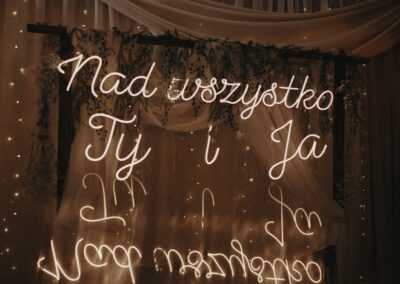 Nad wszystko
Ty i Ja